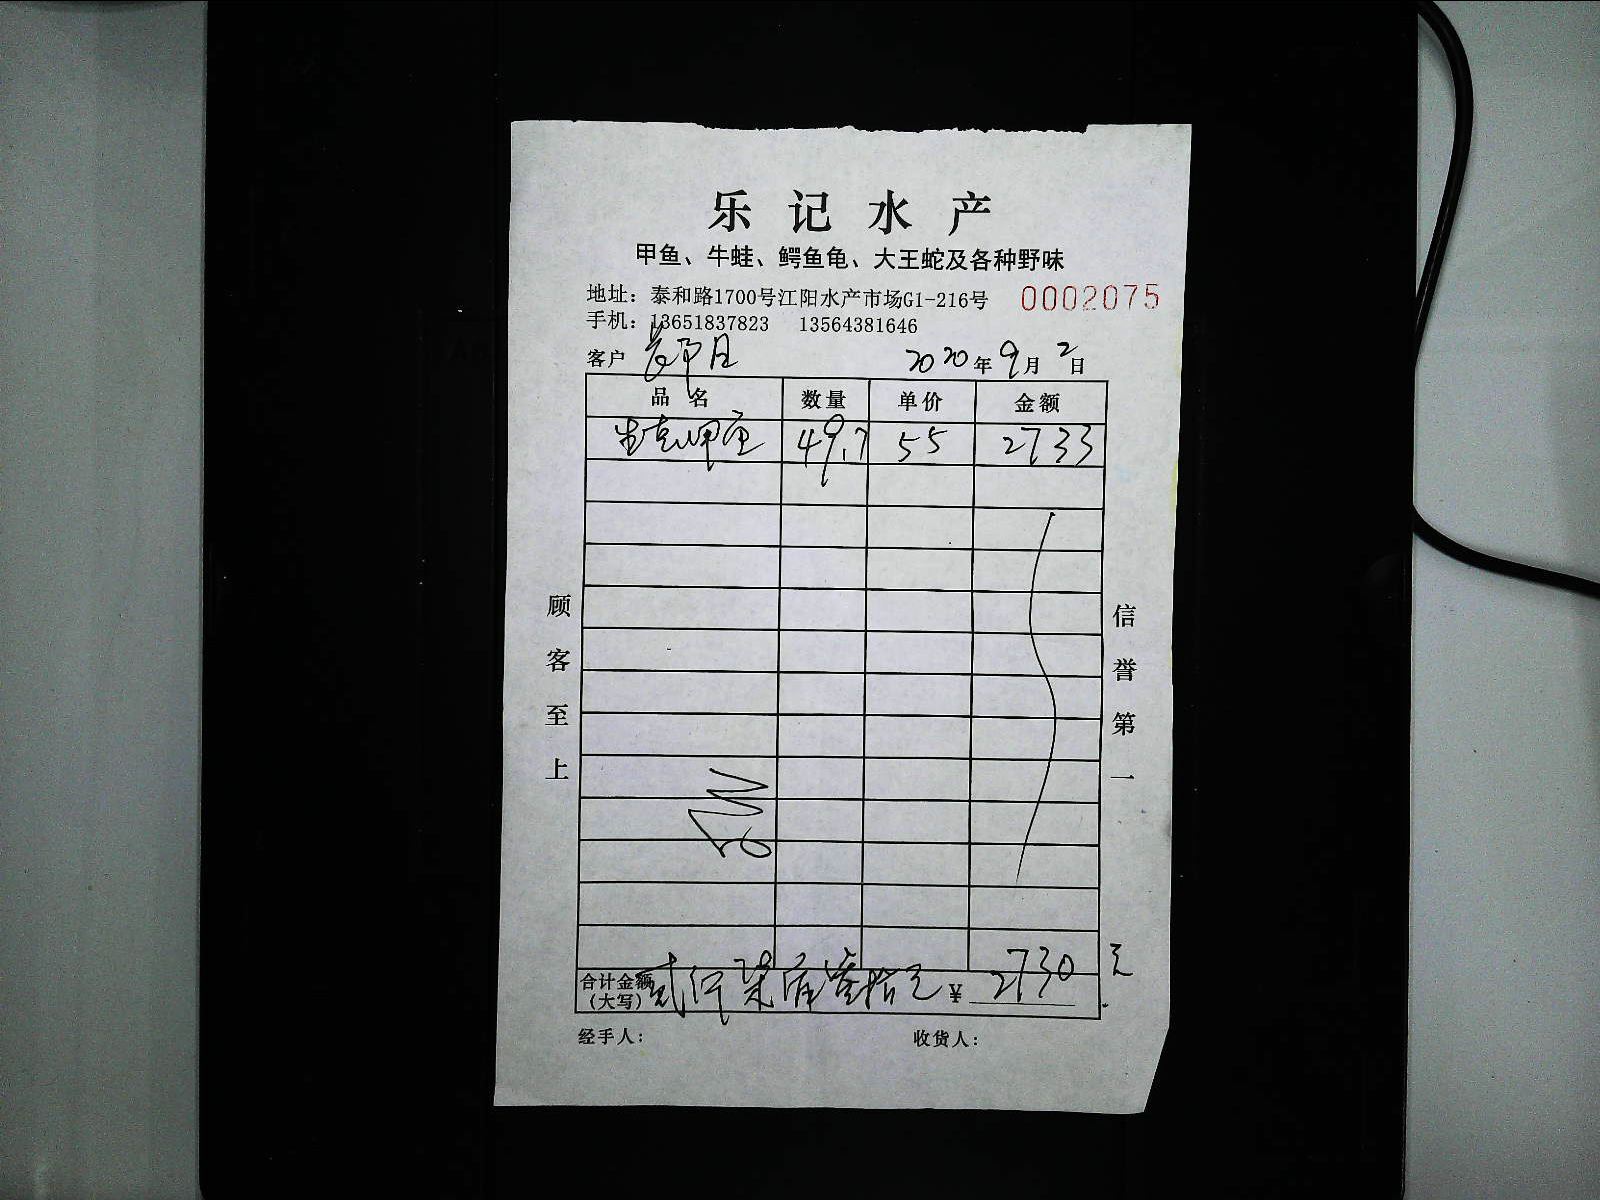 乐记水产
甲鱼、牛蛙、鳄鱼龟、大王蛇及各种野味
地址：泰和路1700号江阳水产市场G1-216号 0002075
手机：13651837823 13564381646
客户 2020年9月2日
品名 数量 单价 金额
49.7 55 2733
顾客至上
信誉第一
合计金额（大写） 贰仟柒佰叁拾元 ¥2730元
经手人： 收货人：